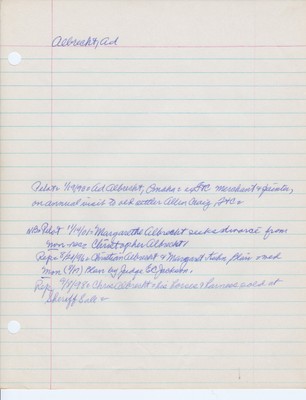 Albrecht, Ad
Pilot = 1/19/98 = Ad Albrecht, Omaha = ex Ft C merchant & painter,
on annual visit to old settler Allen Craig, Ft C =
Pilot 4/4/01 = Margaretha Albrecht seeks divorce from
non-res Christopher Albrecht
Rep = = Christian Albrecht & Margaret Kuhn, Blair = wed
Mon (9/7) Blair by Judge E C Jackson.
Rep = Chris Albrecht = his horses & harness sold at
Sheriff Sale =